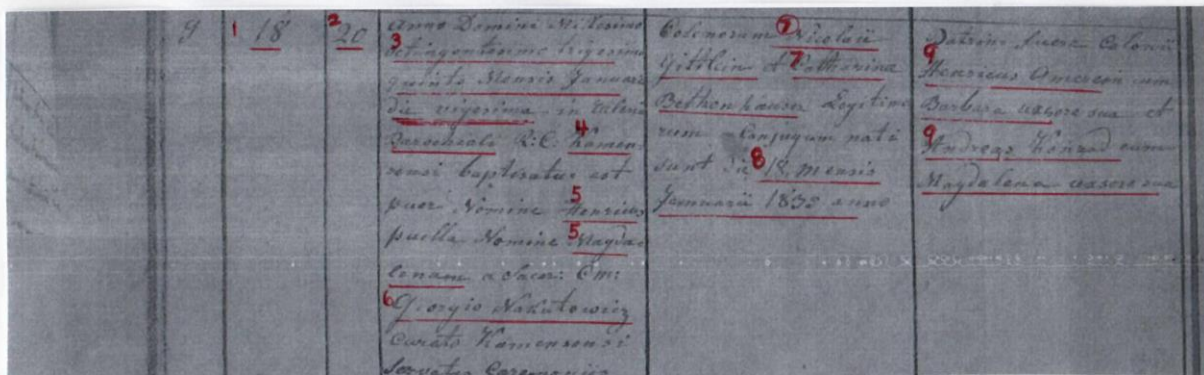 9
1 18
2 20
Anno Domini Millesimo
3
octingentesimo trigesimo
quinto Mensis Januarii
die vigesima in Ecclesia
Parochiali R: C: 4 Kamen
sensi baptisatus est
puer Nomine 5 Henricus
puella Nomine 5 Magda
lenam a Sacer:
6 Giorgio Nakutowicz
Curato Kamensensi
Servatis Caeremoniis
Colonorum 7 Nicolaii
Gittlein et 7 Catharina
Bethenhauser Legitimo
rum Conjugum nati
sunt die 8 18 mensis
Januarii 1835 anno
Patrini fuere Colonii
9
Henricus cum
Barbara uxore sua et
9
Andreas Konrad cum
Magdalena uxore sua